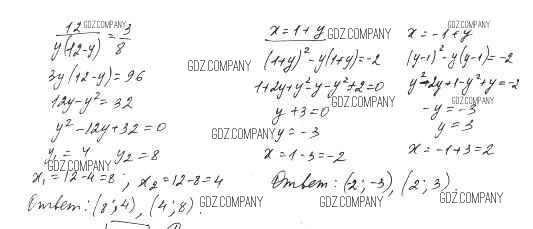 12/(y(12-y)) = 3/8
3y(12-y) = 96
12y-y² = 32
y²-12y+32=0
y₁ = 4 y₂ = 8
x₁ = 12-4=8; x₂ = 12-8=4
Ответ: (8; 4), (4; 8).
x = 1+y
(1+y)²-y(1+y)=-2
1+2y+y²-y-y²+2=0
y+3=0
y = -3
x = 1-3=-2
x = -1+y
(y-1)²-y(y-1)=-2
y²-2y+1-y²+y=-2
-y = -3
y = 3
x = -1+3=2
Ответ: (-2; -3), (2; 3).
GDZ.COMPANY
GDZ.COMPANY
GDZ.COMPANY
GDZ.COMPANY
GDZ.COMPANY
GDZ.COMPANY
GDZ.COMPANY
GDZ.COMPANY
GDZ.COMPANY
GDZ.COMPANY